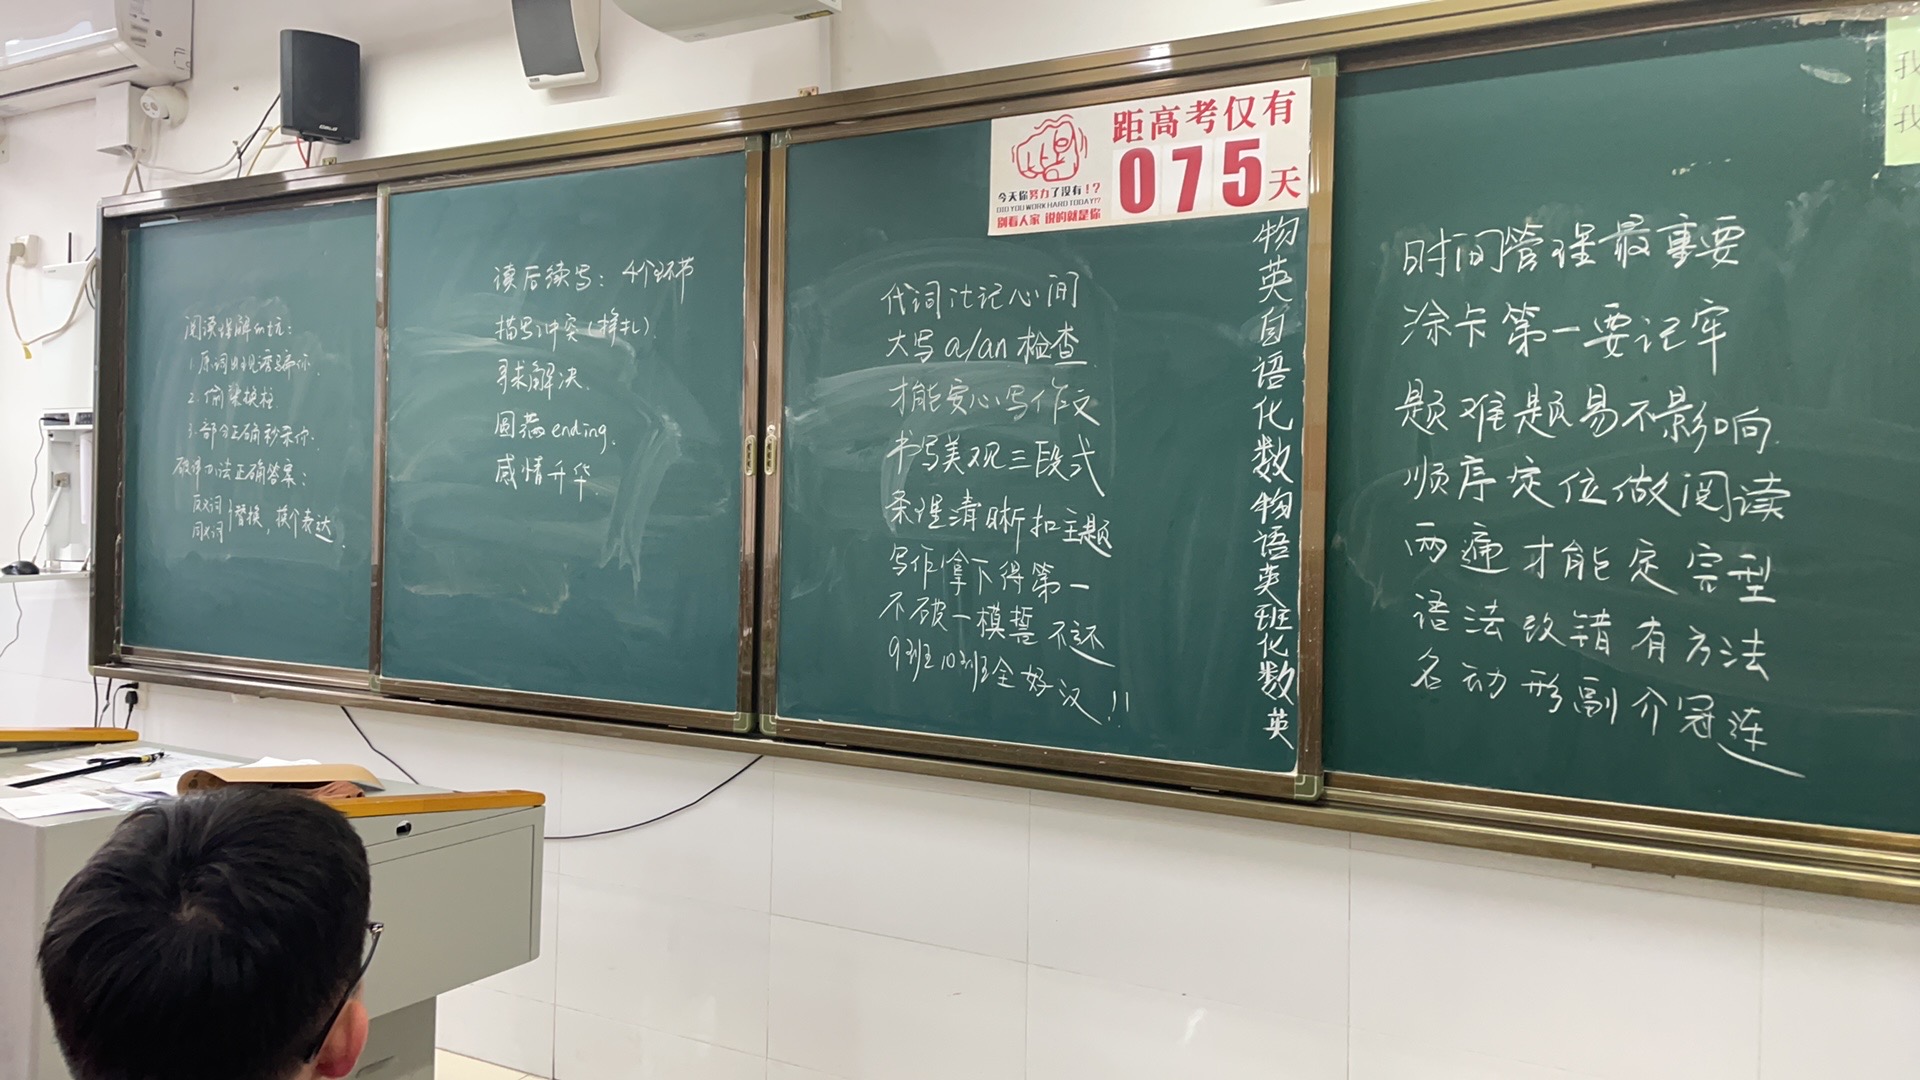 阅读误解的坑:
1. 原词出现诱骗你.
2. 偷梁换柱.
3. 部分正确秒杀你.
破译方法正确答案:
反义词
同义词 }替换, 换个表达.
读后续写: 4个环节
描写冲突(挣扎).
寻求解决.
圆满ending.
感情升华.
距高考仅有
075天
今天你努力了没有!?
DID YOU WORK HARD TODAY!?
别看人家 说的就是你
代词让记心间
大写a/an检查
才能安心写作文
书写美观三段式
条理清晰扣主题
写作拿下得第一
不破一模誓不还
9班10班全好汉!!
物英自语化数物语英班化数英
时间管理最重要
涂卡第一要记牢
题难题易不影响
顺序定位做阅读
两遍才能定完型
语法改错有方法
名动形副介冠连
我
我